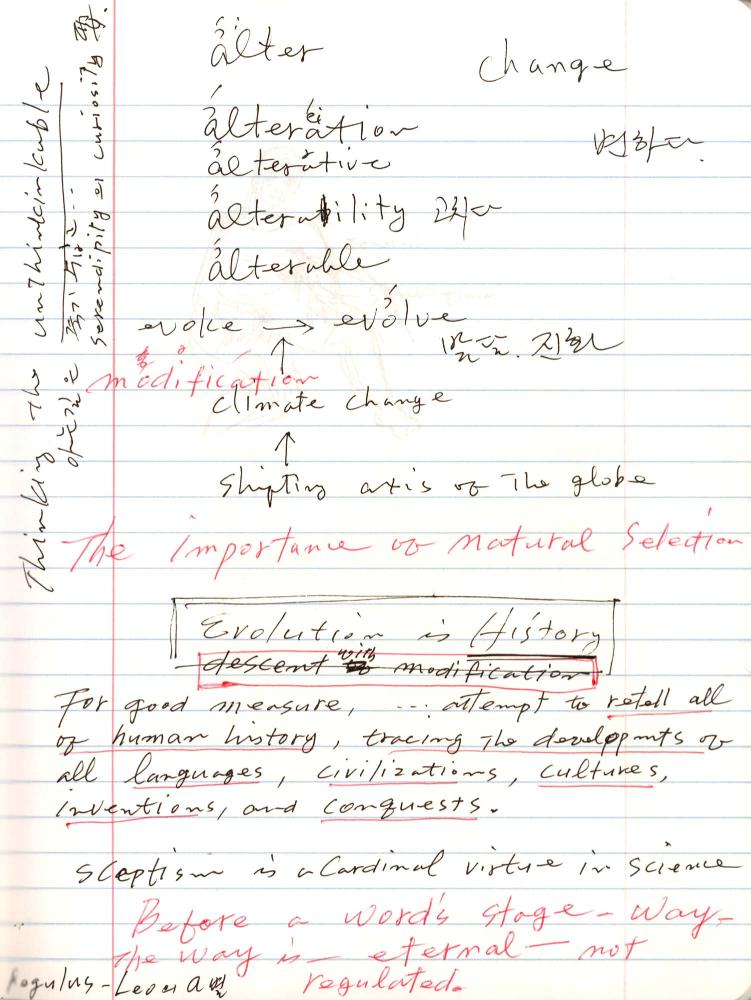 Thinking The unthinkcinkable
serendipity의 curiosity 즉.
álter
change
álteration
álterative
변하다.
álterability 고치다
álterable
evoke → evólve
발달. 진화
módification
climate change
Shipting axis of The globe
The importance of natural Selection
Evolution is History
descent with modification
For good measure, ... attempt to retell all
of human history, tracing The developmts of
all languages, civilizations, cultures,
inventions, and conquests.
Sceptism is a Cardinal virtue in science
Before a word's stage - way -
The way is - eternal - not
regulated.
Regulus - Leo의 α별